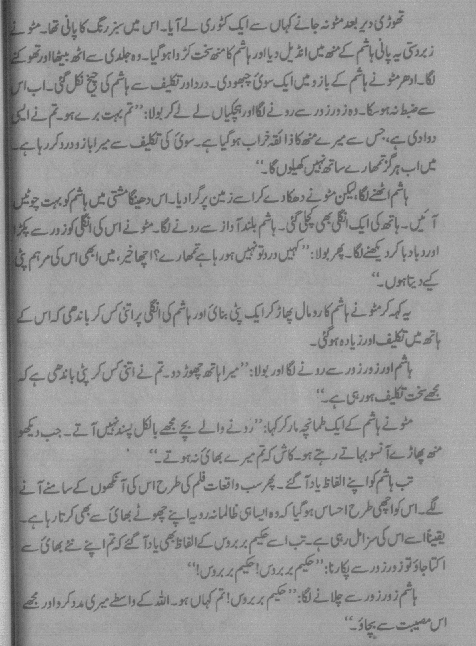 تھوڑی دیر بعد مٹو نہ جانے کہاں سے ایک کٹوری لے آیا۔ اس میں سبز رنگ کا پانی تھا۔ مٹو نے
زبردستی یہ پانی ہاشم کے منھ میں انڈیل دیا اور ہاشم کا منھ سخت کڑوا ہو گیا۔ وہ جلدی سے اٹھ بیٹھا اور تھوکنے
لگا۔ ادھر مٹو نے ہاشم کے بازو میں ایک سوئی چبھو دی۔ درد اور تکلیف سے ہاشم کی چیخ نکل گئی۔ اب اس
سے ضبط نہ ہو سکا۔ وہ زور زور سے رونے لگا اور ہچکیاں لے لے کر بولا: ”تم بہت برے ہو۔ تم نے ایسی
دوا دی ہے، جس سے میرے منھ کا ذائقہ خراب ہو گیا ہے۔ سوئی کی تکلیف سے میرا بازو درد کر رہا ہے۔
میں اب ہرگز تمھارے ساتھ نہیں کھیلوں گا۔“
ہاشم اٹھنے لگا، لیکن مٹو نے دھکا دے کر اسے زمین پر گرا دیا۔ اس دھینگا مشتی میں ہاشم کو بہت چوٹیں
آئیں۔ ہاتھ کی ایک انگلی بھی کچلی گئی۔ ہاشم بلند آواز سے رونے لگا۔ مٹو نے اس کی انگلی کو زور سے پکڑا
اور دبا دبا کر دیکھنے لگا۔ پھر بولا: ”کہیں درد تو نہیں ہو رہا ہے تمھارے؟ اچھا خیر، میں ابھی اس کی مرہم پٹی
کیے دیتا ہوں۔“
یہ کہہ کر مٹو نے ہاشم کا رومال پھاڑ کر ایک پٹی بنائی اور ہاشم کی انگلی پر اتنی کس کر باندھی کہ اس کے
ہاتھ میں تکلیف اور زیادہ ہو گئی۔
ہاشم اور زور زور سے رونے لگا اور بولا: ”میرا ہاتھ چھوڑ دو۔ تم نے اتنی کس کر پٹی باندھی ہے کہ
مجھے سخت تکلیف ہو رہی ہے۔“
مٹو نے ہاشم کے ایک طمانچہ مار کر کہا: ”رونے والے بچے مجھے بالکل پسند نہیں آتے۔ جب دیکھو
منھ پھاڑے آنسو بہاتے رہتے ہو۔ کاش کہ تم میرے بھائی نہ ہوتے۔“
تب ہاشم کو اپنے الفاظ یاد آ گئے۔ پھر سب واقعات فلم کی طرح اس کی آنکھوں کے سامنے آنے
لگے۔ اس کو اچھی طرح احساس ہو گیا کہ وہ ایسا ہی ظالمانہ رویہ اپنے چھوٹے بھائی سے بھی کرتا رہا ہے۔
یقیناً اسے اس کی سزا مل رہی ہے۔ تب اسے حکیم بربروس کے الفاظ بھی یاد آ گئے کہ تم اپنے نئے بھائی سے
اکتا جاؤ تو زور زور سے پکارنا: ”حکیم بربروس! حکیم بربروس!“
ہاشم زور زور سے چلانے لگا: ”حکیم بربروس! تم کہاں ہو۔ اللہ کے واسطے میری مدد کرو اور مجھے
اس مصیبت سے بچاؤ۔“